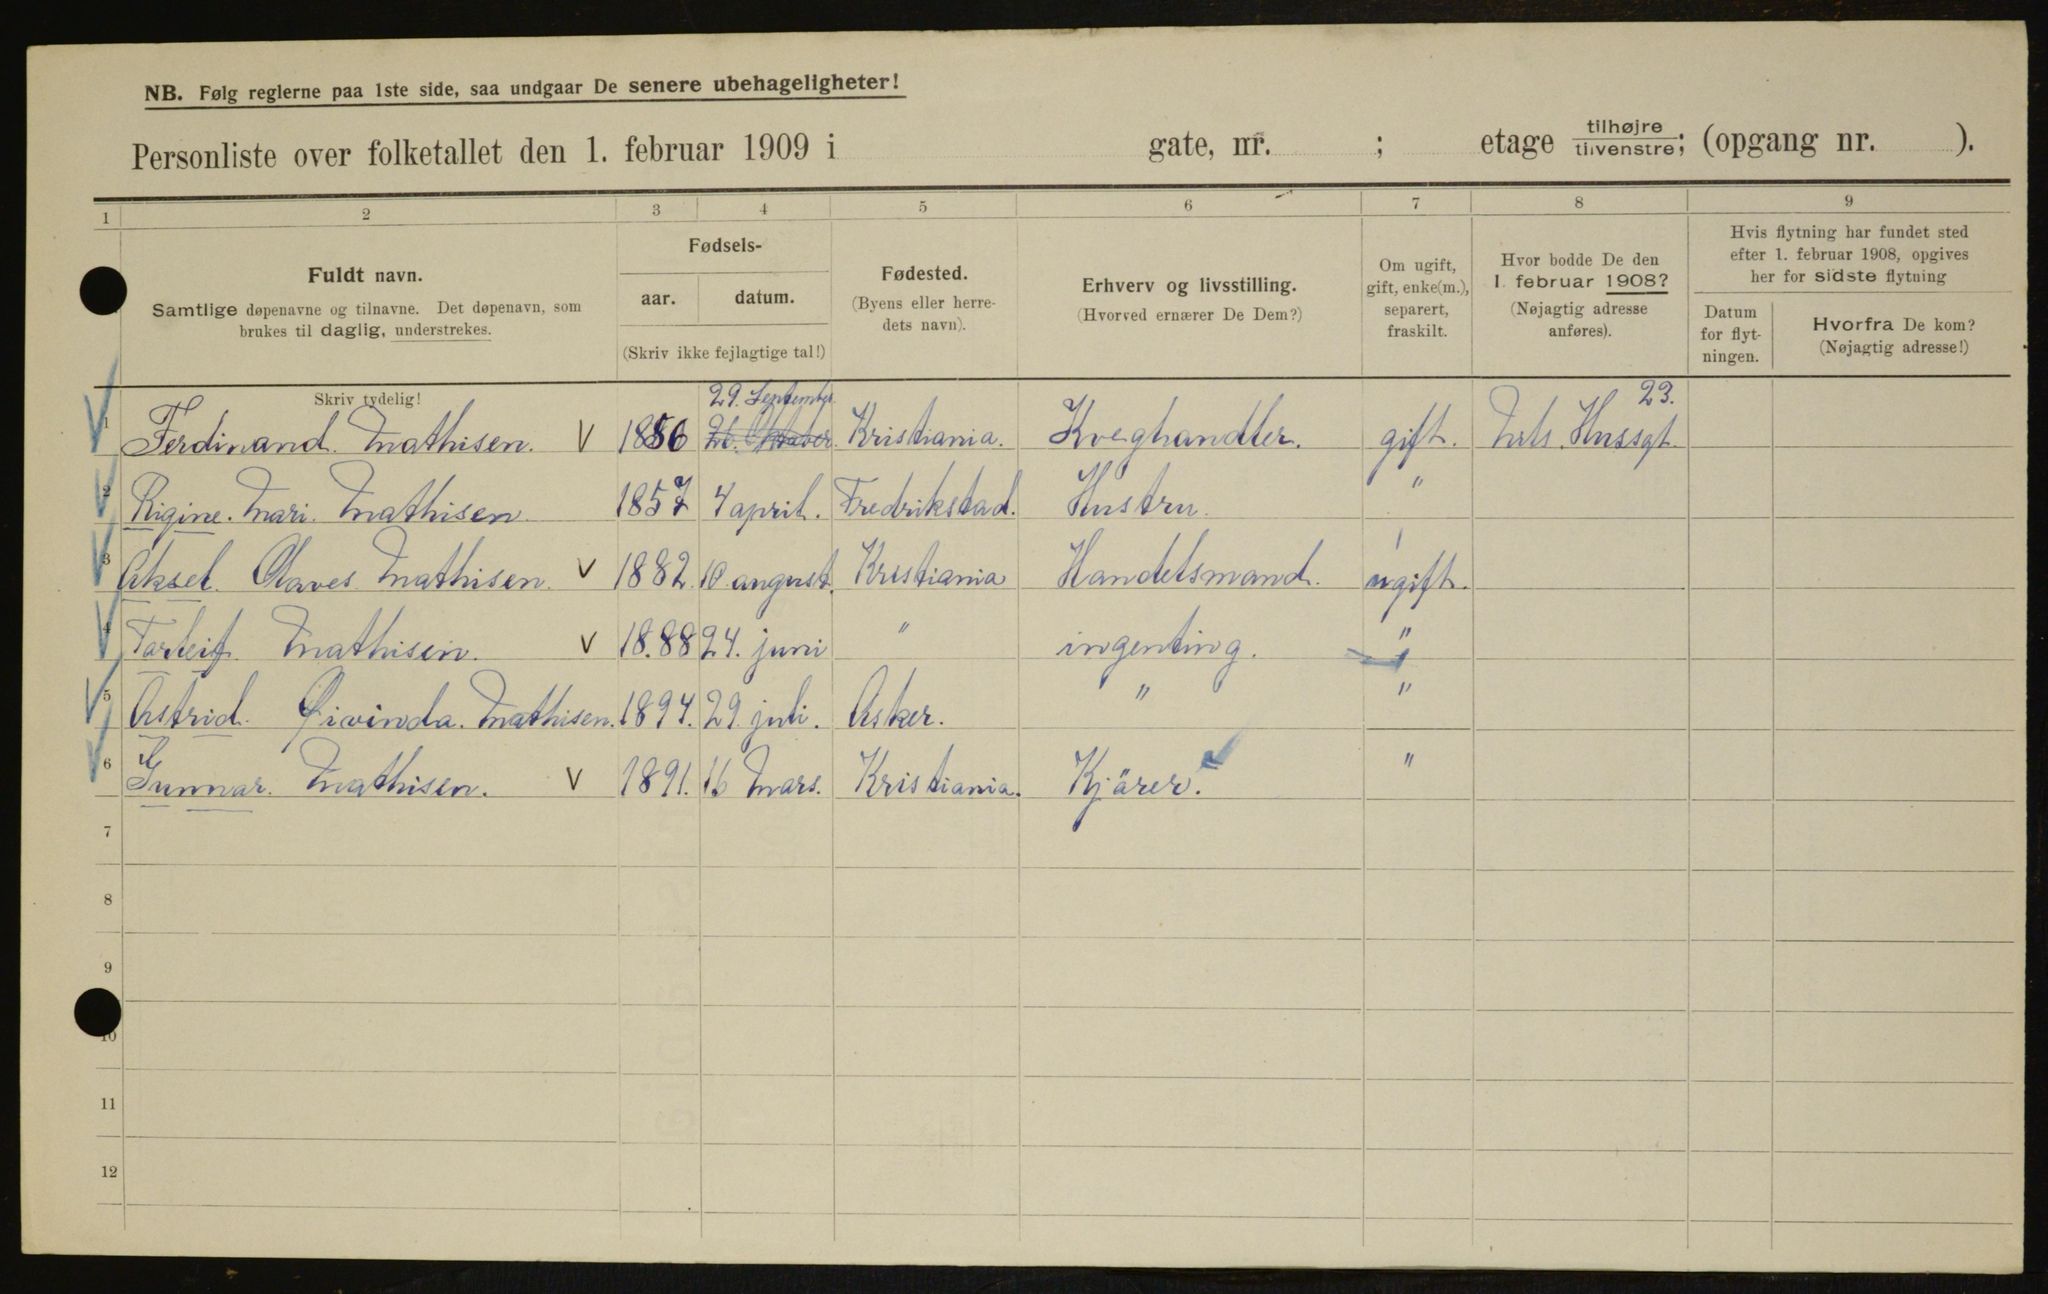 NB. Følg reglerne paa 1ste side, saa undgaar De senere ubehageligheter!
Personliste over folketallet den 1. februar 1909 i gate, nr. ; etage tilhøjre tilvenstre; (opgang nr. ).
1 2 3 4 5 6 7 8 9
Fuldt navn.
Samtlige døpenavne og tilnavne. Det døpenavn, som
brukes til daglig, understrekes.
Fødsels-
aar. datum.
(Skriv ikke fejlagtige tal!)
Fødested.
(Byens eller herre-
dets navn).
Erhverv og livsstilling.
(Hvorved ernærer De Dem?)
Om ugift,
gift, enke(m.),
separert,
fraskilt.
Hvor bodde De den
1. februar 1908?
(Nøjagtig adresse
anføres).
Hvis flytning har fundet sted
efter 1. februar 1908, opgives
her for sidste flytning
Datum
for flyt-
ningen.
Hvorfra De kom?
(Nøjagtig adresse!)
Skriv tydelig!
29. September 23.
1 Ferdinand. Mathisen. V 1856 26. Oktober Kristiania. Kveghandler. gift. Nils Hussgt.
2 Rigine. Mari. Mathisen. 1857 4 april. Fredrikstad. Hustru. "
3 Aksel. Olaves Mathisen. V 1882. 10 august. Kristiania Handelsmand. ugift.
4 Torleif. Mathisen. V 18.88 24. juni " ingenting. "
5 Astrid. Øivinda. Mathisen. 1894. 29. juli. Asker. " "
6 Gunnar. Mathisen. V 1891. 16 Mars. Kristiania. Kjärer. "
7
8
9
10
11
12